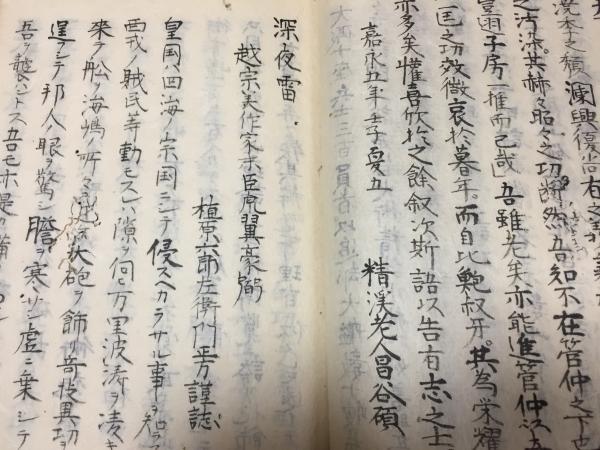 漢季之頽瀾興復
之汚染其赫々昭々之功
豈雨子房一椎而已哉吾雖老矣亦能進管仲
一匡之功效微哀於暮年而自比鮑叔牙其為栄耀
亦多矣懽喜欣抃之餘叙次斯語以告有志之士
嘉永五年壬子夏五
精渓老人昌谷碩
深夜雷
越宗美作家末臣虎翼豪弼
植原六郎左衛門正方謹誌
皇国ハ四海ノ宗国ニシテ侵スヘカラサル事ヲ知ラス
西戎ノ賊民等動モスレハ隙ヲ伺ヒ万里波涛ヲ凌キ
来ヲ舩ヲ海嶋ノ所々ニ 大砲ヲ飾リ奇技異功ヲ
逞フシテ邦人ノ眼ヲ驚シ膽ヲ寒ツシ虚ニ乗シテ
吾ヲ襲ハントス吾モホ是